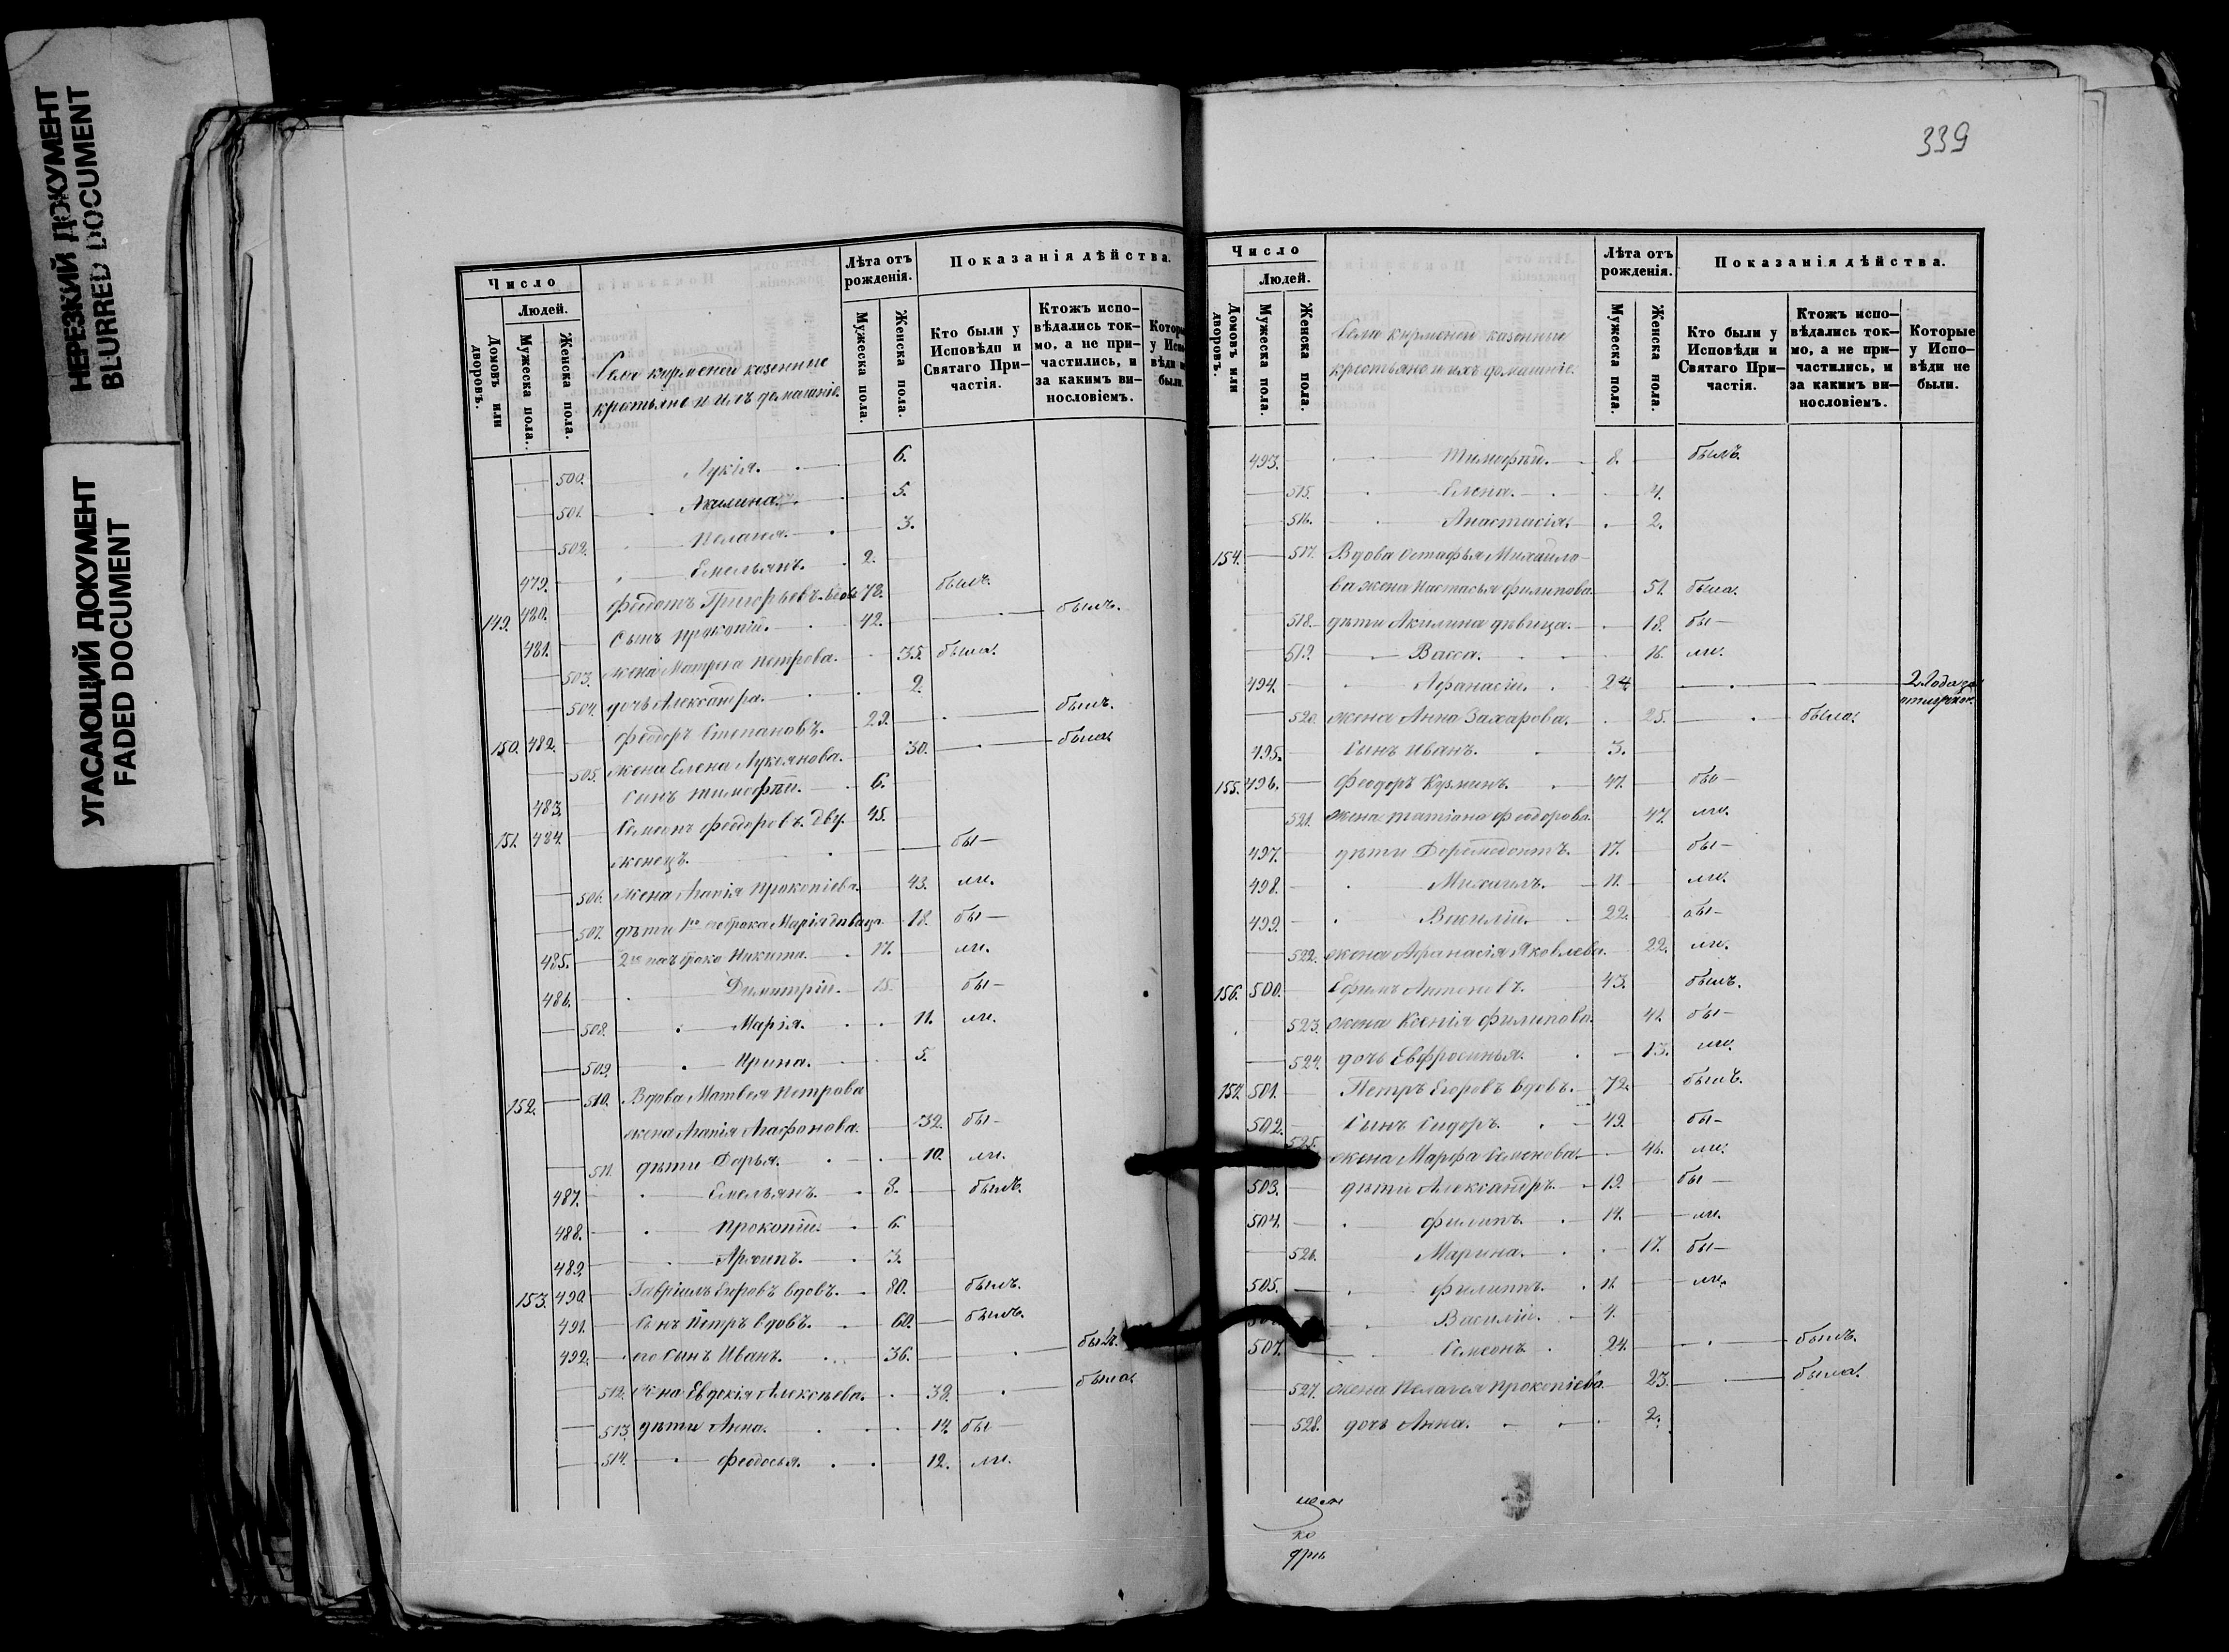 НЕРЕЗКИЙ ДОКУМЕНТ
BLURRED DOCUMENT
УГАСАЮЩИЙ ДОКУМЕНТ
FADED DOCUMENT
Число
Людей.
Домовъ или дворовъ.
Мужеска пола.
Женска пола.
Село курменей казенные
крестьяне и ихъ домашніе.
Лѣта отъ рожденія.
Мужеска пола.
Женска пола.
Показанія дѣйства.
Кто были у Исповѣди и Святаго При-частія.
Ктожъ испо-вѣдались ток-мо, а не при-частились, и за какимъ ви-нословіемъ.
500. Лукія. 6.
501. Акилина. 5.
502. Пелагея. 3.
479. Емельянъ. 2.
149. 480. Федотъ Григорьевъ вдов 78. былъ.
481. Сынъ Прокопій. 42. былъ.
503. жена Матрена Петрова. 35. была.
504. дочь Александра. 2.
150. 482. Федоръ Степановъ. 29. былъ.
505. жена Елена Лукьянова. 30. была
483. Сынъ Тимофѣй. 6.
151. 484. Семенъ Феодоровъ. Дву- 45.
женецъ. бы—
506. жена Агапія Прокопіева. 43. ли.
507. дѣти 1го брака Марія дѣвица. 18. бы—
485. 2го брака Никита. 17. ли.
486. Димитрій. 15. бы—
508. Марія. 11. ли.
509. Ирина. 5.
152. 510. Вдова Матвея Петрова
жена Агапія Агафонова. 32. бы—
511. дѣти Дарья. 10. ли.
487. Емельянъ. 8. былъ.
488. Прокопій. 6.
489. Архипъ. 3.
153. 490. Гавріилъ Егоровъ вдовъ. 80. былъ.
491. Сынъ Петръ вдовъ. 60. былъ.
492. его Сынъ Иванъ. 36. былъ.
512. жена Евдокія Алексѣева. 38. была.
513. дѣти Анна. 14. бы—
514. Феодосья. 12. ли.
339
Число
Людей.
Домовъ или дворовъ.
Мужеска пола.
Женска пола.
Село курменей казенные
крестьяне и ихъ домашніе.
Лѣта отъ рожденія.
Мужеска пола.
Женска пола.
Показанія дѣйства.
Кто были у Исповѣди и Святаго При-частія.
Ктожъ испо-вѣдались ток-мо, а не при-частились, и за какимъ ви-нословіемъ.
Которые у Испо-вѣди не были.
493. Тимофѣй. 8. былъ.
515. Елена. 4.
516. Анастасія. 2.
154. 517. Вдова Остафья Михайло-
ва жена Настасья Филипова. 51. была.
518. дѣти Акилина дѣвица. 18. бы—
519. Васса. 16. ли.
494. Афанасій. 24. 2 года за
520. жена Анна Захарова. 25. была.
495. Сынъ Иванъ. 3.
155. 496. Феодоръ Кузминъ. 47. бы—
521. жена Татіана Феодорова. 47. ли.
497. дѣти Доримедонтъ. 17. бы—
498. Михаилъ. 11. ли.
499. Василій. 22. бы—
522. жена Афанасія Яковлева. 22. ли.
156. 500. Ефимъ Антоновъ. 43. былъ.
523. жена Ксенія Филипова. 41. бы—
524. дочь Евфросинья. 13. ли.
157. 501. Петръ Егоровъ вдовъ. 72. былъ.
502. Сынъ Сидоръ. 49. бы—
525. жена Марфа Семенова. 46. ли.
503. дѣти Александръ. 19. бы—
504. Филипъ. 14. ли.
526. Марина. 17. бы—
505. Филиппъ. 11. ли.
Василій. 4.
507. Семеонъ. 24. былъ.
527. жена Пелагея Прокопіева. 23. была.
528. дочь Анна. 2.